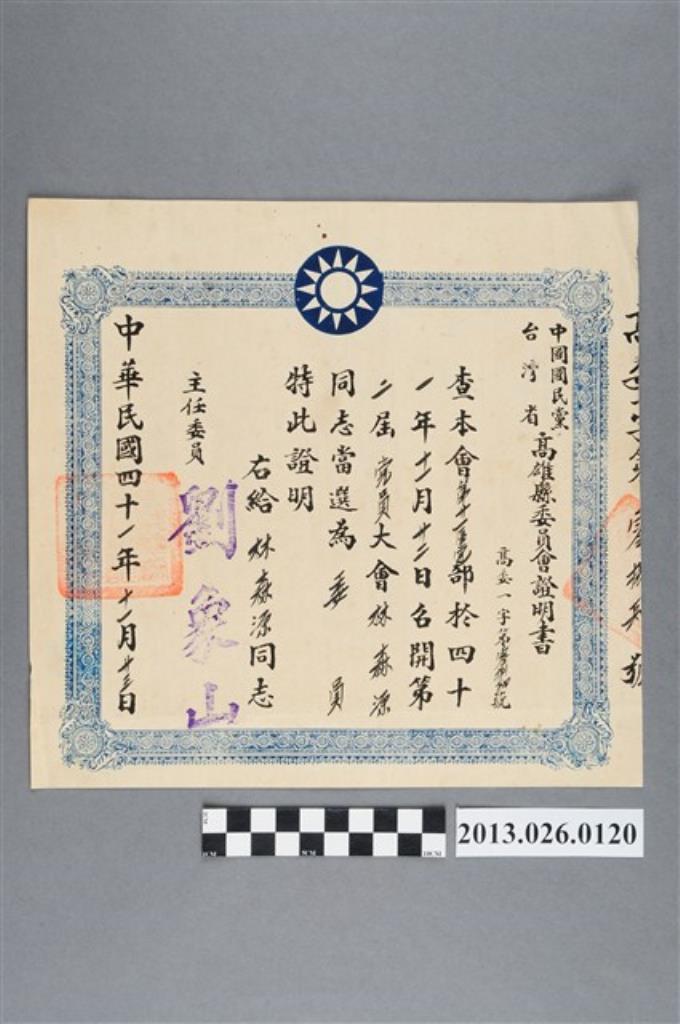 中國國民黨
台灣省
高雄縣委員會證明書
高委一字第
號
查本會第十一區黨部於四十
一年十一月廿二日召開第
二屆黨員大會林森源
同志當選為委員
特此證明
右給林森源同志
主任委員
劉象山
中華民國四十一年十一月廿三日
2013.026.0120